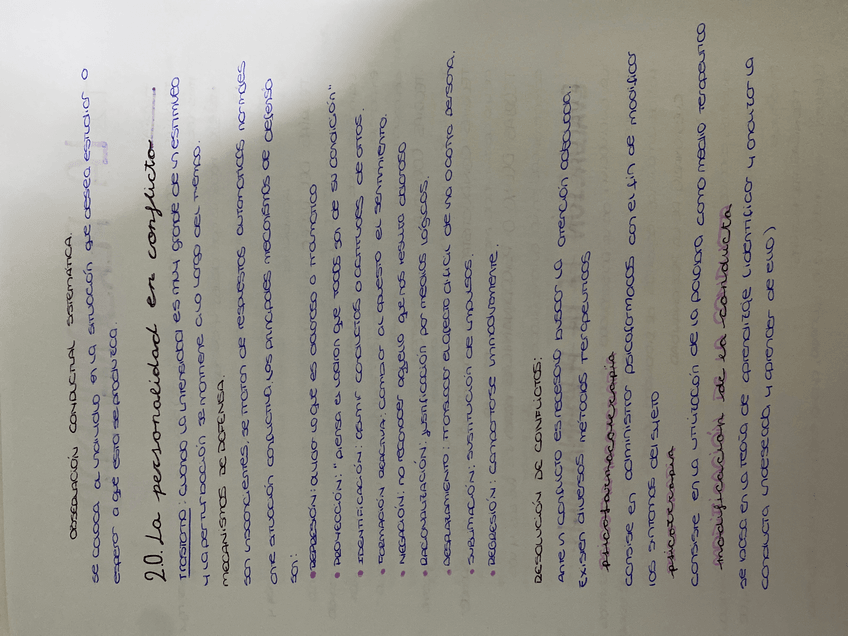 OBSERVACIÓN CONDUCTUAL SISTEMÁTICA.
se coloca al individuo en la situación que desea estudiar o
esperar a que esta se produzca.
2.0. La personalidad en conflicto
TRASTORNO: cuando la intensidad es muy grande de un estímulo
y la perturbación se mantiene a lo largo del tiempo.
MECANISMOS DE DEFENSA.
son inconscientes, se tratan de respuestas automáticas normales
ante situación conflictiva, los principales mecanismos de defensa
son:
• REPRESIÓN: aquello que es doloroso o traumático
• PROYECCIÓN: "piensa el ladrón que todos son de su condición"
• IDENTIFICACIÓN: asumir conductas o actitudes de otros.
• FORMACIÓN REACTIVA: cambiar al opuesto el sentimiento.
• NEGACIÓN: no reconocer aquello que nos resulta doloroso
• RACIONALIZACIÓN: justificación por medios lógicos.
• DESPLAZAMIENTO: trasladar el afecto difícil de una a otra persona.
• SUBLIMACIÓN: sustitución de impulsos.
• REGRESIÓN: comportarse inmaduramente.
RESOLUCIÓN DE CONFLICTOS:
Ante un conflicto es necesario buscar la atención adecuada.
Existen diversos métodos terapeuticos
psicofarmacoterapia
consiste en administrar psicofármacos con el fin de modificar
los síntomas del sujeto
psicoterapia
consiste en la utilización de la palabra como medio terapeutico
modificación de la conducta
se basa en la teoría de aprendizaje (identificar y anular la
conducta indeseada y aprender de ello)